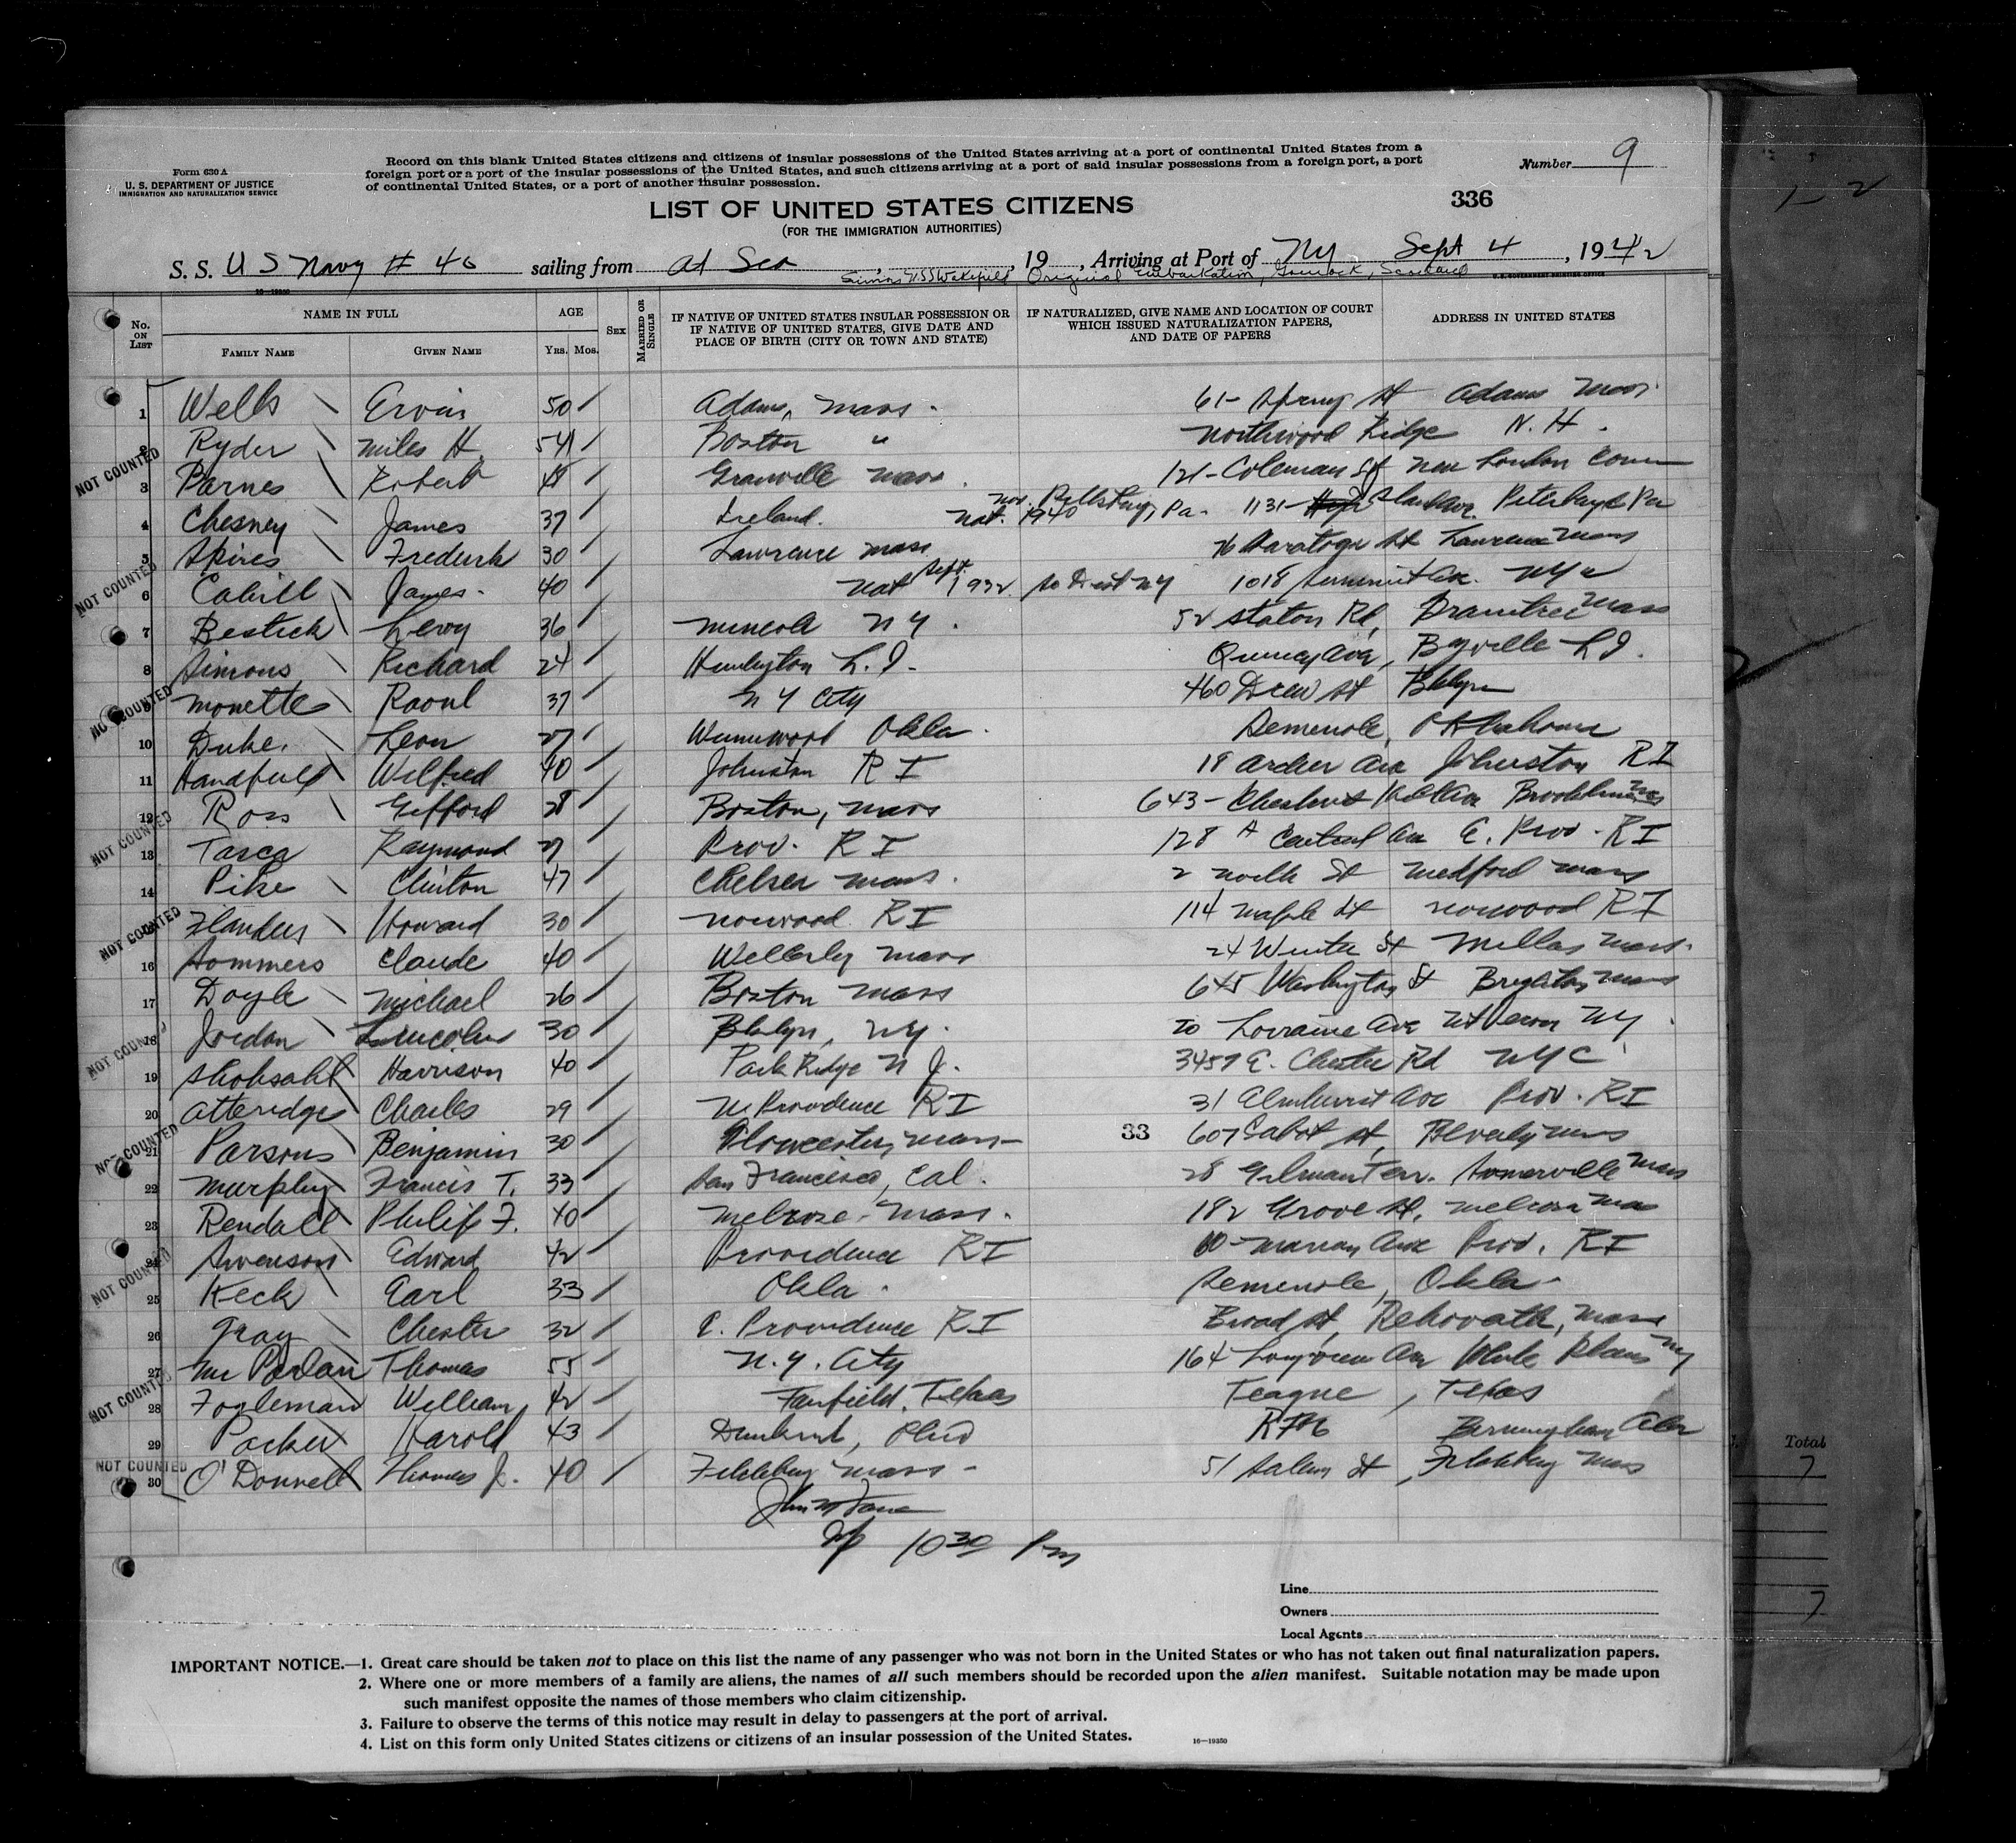 Form 630 A
U. S. DEPARTMENT OF JUSTICE
IMMIGRATION AND NATURALIZATION SERVICE
Record on this blank United States citizens and citizens of insular possessions of the United States arriving at a port of continental United States from a
foreign port or a port of the insular possessions of the United States, and such citizens arriving at a port of said insular possessions from a foreign port, a port
of continental United States, or a port of another insular possession.
Number 9
LIST OF UNITED STATES CITIZENS
336
(FOR THE IMMIGRATION AUTHORITIES)
S. S. U S Navy # 40 sailing from at Sea , 19 , Arriving at Port of NY Sept 4 , 1942
U.S.S Wakefield Original Embarkation, Gourock, Scotland
16—19350
U.S. GOVERNMENT PRINTING OFFICE
No. ON LIST
NAME IN FULL
FAMILY NAME
GIVEN NAME
AGE
Yrs. Mos.
SEX
MARRIED OR SINGLE
IF NATIVE OF UNITED STATES INSULAR POSSESSION OR
IF NATIVE OF UNITED STATES, GIVE DATE AND
PLACE OF BIRTH (CITY OR TOWN AND STATE)
IF NATURALIZED, GIVE NAME AND LOCATION OF COURT
WHICH ISSUED NATURALIZATION PAPERS,
AND DATE OF PAPERS
ADDRESS IN UNITED STATES
1 Wells Ervin 50 Adams, Mass. 61- Spring St Adams Mass
2 Ryder Miles H. 54 Boston " Northwood Ridge N. H.
NOT COUNTED
3 Barnes Robert 48 Granville Mass. 121- Coleman St New London Conn
4 Chesney James 37 Ireland. Nat. Nov. 1940 Pittsburg, Pa. 1131- Pa
5 Spires Frederick 30 Lawrence Mass 76 Saratoga St Lawrence Mass
NOT COUNTED
6 Cahill James 40 Nat Sept. 1932 So Dist NY 1018 Summit Ave. NYC
7 Bestick Leroy 36 Mineola NY. 52 Staton Rd, Braintree Mass
8 Simons Richard 24 Huntington L. I. Quincy Ave, Bayville L I.
NOT COUNTED
9 Monette Raoul 37 N Y City 460 Drew St Bklyn
10 Duke. Leon 27 Okla. Semenole, Oklahoma
11 Handfield Wilfred 40 Johnston R I 18 Archer Ave Johnston R I
12 Ross Gifford 28 Boston, Mass 643- Chestnut Hill Ave Brookline Mass
NOT COUNTED
13 Tasca Raymond 27 Prov. R I 128 A Central Ave E. Prov. R I
14 Pike Clinton 47 Chelsea Mass. 2 North St Medford Mass
NOT COUNTED
15 Flanders Howard 30 Norwood R I 114 Maple St Norwood R I
16 Sommers Claude 40 Mass 24 Winter St Mass.
17 Doyle Michael 26 Boston Mass 645 Washington St Brighton Mass
18 Jordan Lincoln 30 Bklyn, NY. 20 Lorraine Ave Mt Vernon NY.
NOT COUNTED
19 Harrison 40 Park Ridge N J. 3457 E. Chester Rd NYC
20 Atteridge Charles 29 N. Providence R I 31 Elmhurst Ave Prov. R I
NOT COUNTED
21 Parsons Benjamin 30 Gloucester, Mass- 33 607 Cabot St, Beverly Mass
22 Murphy Francis T. 33 San Francisco, Cal. 28 Gilman Terr. Somerville Mass
23 Rendall Philip F. 40 Melrose, Mass. 182 Grove St. Melrose Mass
24 Swenson Edward 42 Providence R I 60- Marion Ave Prov. R I
NOT COUNTED
25 Keck Earl 33 Okla. Semenole, Okla-
26 Gray Chester 32 E. Providence R I Broad St, Mass
27 Mc Parlan Thomas 55 N. Y. City 164 Longview Ave White Plains NY
NOT COUNTED
28 Fogleman William 42 Fairfield, Texas Teague, Texas
29 Packer Harold 43 Ohio Birmingham Ala
NOT COUNTED
30 O'Donnell Thomas J. 40 Fitchburg Mass- 51 Salem St, Fitchburg Mass
10 30 Pm
Line
Owners
Local Agents
IMPORTANT NOTICE.—1. Great care should be taken not to place on this list the name of any passenger who was not born in the United States or who has not taken out final naturalization papers.
2. Where one or more members of a family are aliens, the names of all such members should be recorded upon the alien manifest. Suitable notation may be made upon
such manifest opposite the names of those members who claim citizenship.
3. Failure to observe the terms of this notice may result in delay to passengers at the port of arrival.
4. List on this form only United States citizens or citizens of an insular possession of the United States.
16—19350
Total
7
7